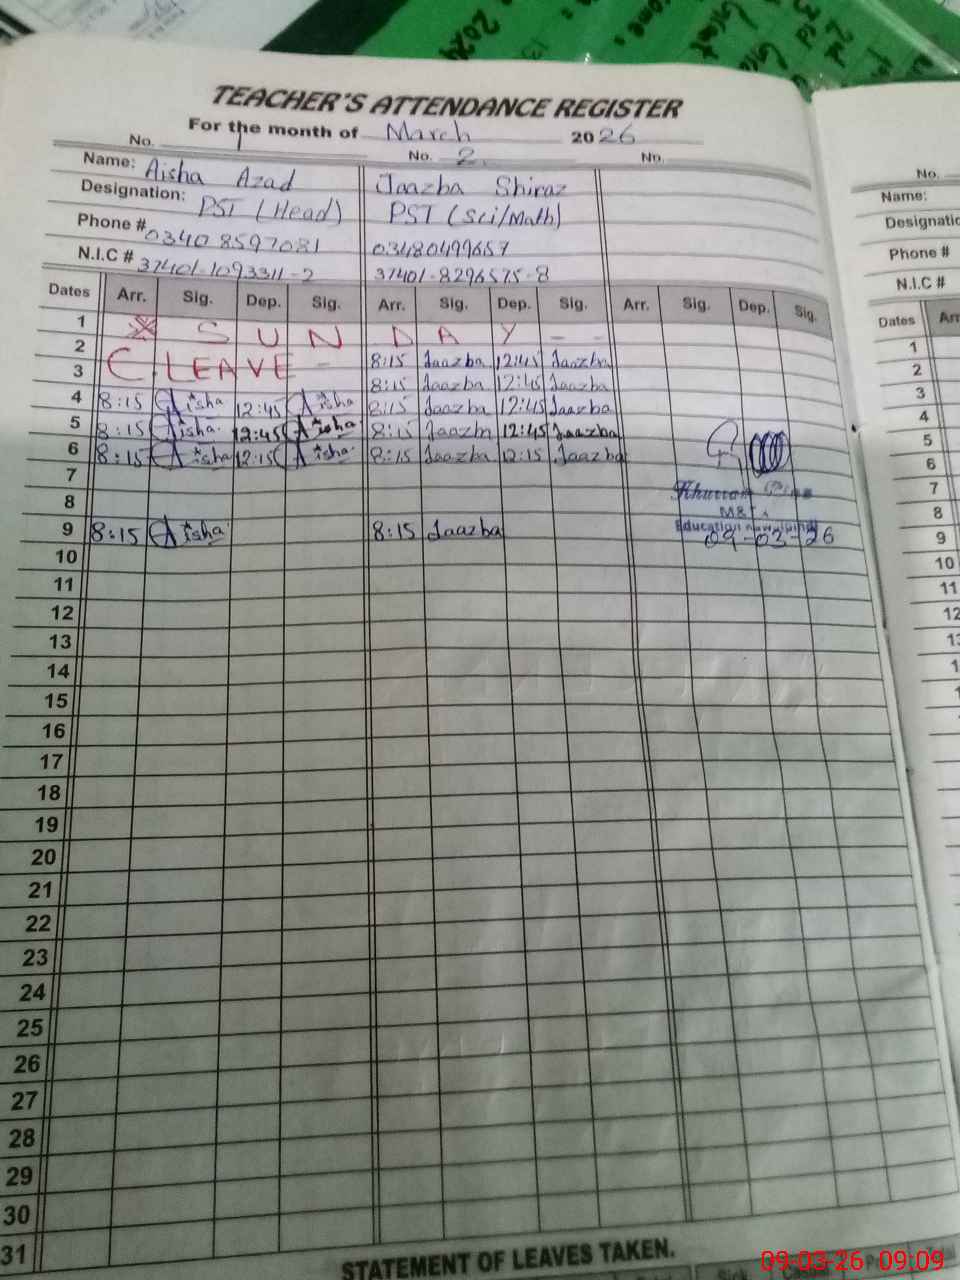 TEACHER'S ATTENDANCE REGISTER
For the month of March 2026
No. 1 No. 2 No.
Name: Aisha Azad Jaazba Shiraz
Designation: PST (Head) PST (Sci/Math)
Phone # 03408597081 03480499657
N.I.C # 37401-1093311-2 37401-8296575-8
Dates Arr. Sig. Dep. Sig. Arr. Sig. Dep. Sig. Arr. Sig. Dep. Sig.
1 S U N D A Y - -
2 8:15 Jaazba 12:45 Jaazba
C. LEAVE -
3 8:15 Jaazba 12:45 Jaazba
4 8:15 Aisha 12:45 Aisha 8:15 Jaazba 12:45 Jaazba
5 8:15 Aisha 12:45 Aisha 8:15 Jaazba 12:45 Jaazba
6 8:15 Aisha 12:15 Aisha 8:15 Jaazba 12:15 Jaazba
7
8
9 8:15 Aisha 8:15 Jaazba
Khurram
Education
09-03-26
10
11
12
13
14
15
16
17
18
19
20
21
22
23
24
25
26
27
28
29
30
31
STATEMENT OF LEAVES TAKEN.
No.
Name:
Phone #
N.I.C #
Dates
1
2
3
4
5
6
7
8
9
10
11
12
09-03-26 09:09